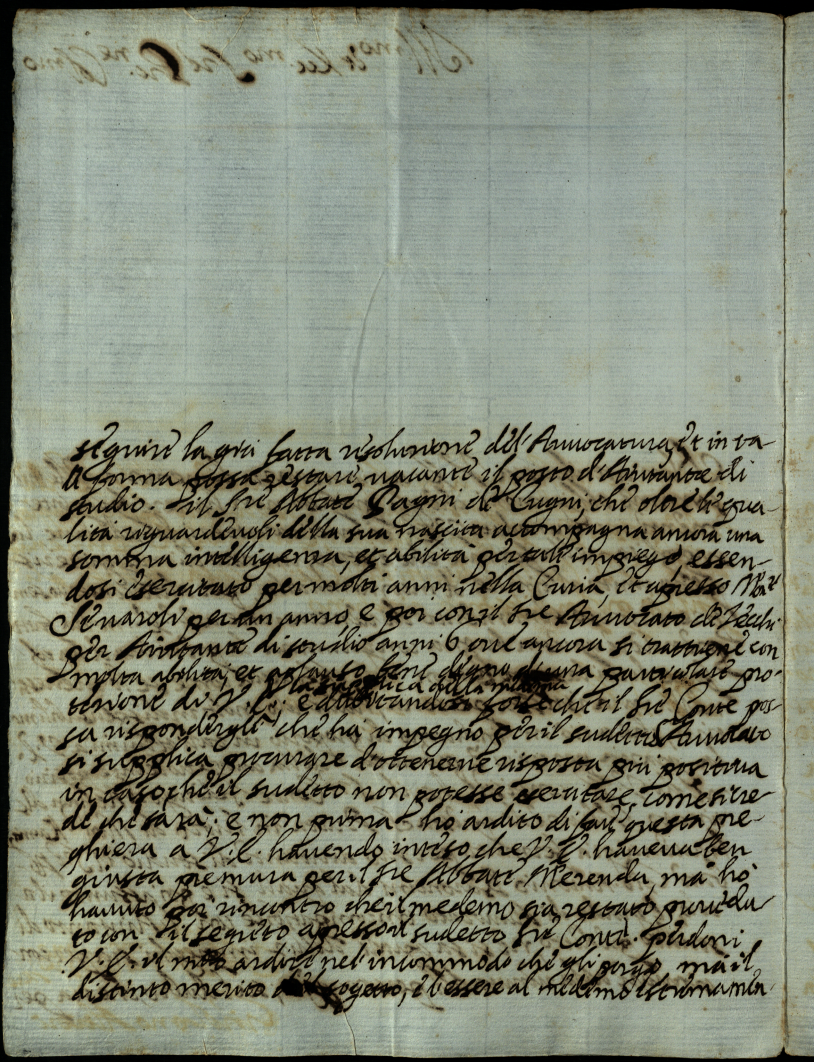 seguire la già fatta resolutione del'Auuocatura, et in ta-
l forma possa restare uacante il posto d'Aiutante di
studio. il Sre Abbate Pagni de Cugni, che oltre le qua-
lità riguardeuoli della sua nascita accompagna ancora una
somma intelligenza, et abilità per tale impiego, essen-
dosi esercitato per molti anni nella Curia, et apresso Monsr
Seuaroli per un anno, e poi con il Sre Auuocato de Vecchi
per Aiutante di studio anni 6, oue ancora si trattiene con
molta abilità, et aplauso, bene degno di una particolare pro-
tetione di V.E.; e dubitandosi che il Sre Conte pos-
la supplica della medema
sa rispondergli che ha impegno per il sudetto Auuocato
si supplica procurare d'ottenerne risposta più positiua
in caso che il sudetto non potesse esercitare, come si cre-
de che sarà; e non prima ho ardito di far questa pre-
ghiera a V.E. hauendo inteso che V.E. haueua ben
giusta premura per il Sre Abbate Merenda, ma ho
hauuto poi rincontro che il medemo sia restato prouedu-
to con il segreto apresso il sudetto Sre Conte. perdoni
V.E. il mio ardire nel'incommodo che gli porgo, ma il
distinto merito del sogetto, e l'essere al medemo estremamen-